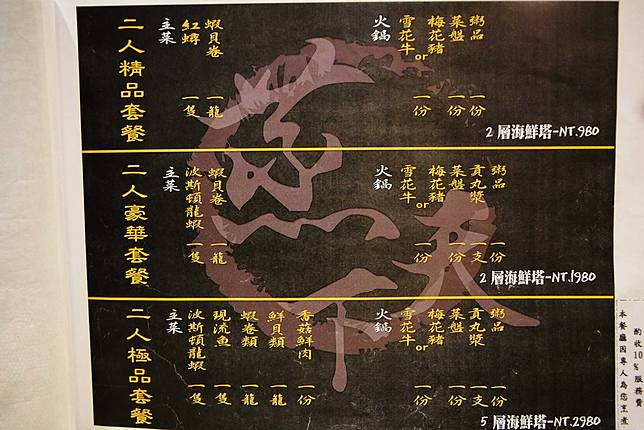 二人精品套餐
主菜
紅蟳 一隻
蝦貝卷 一龍
火鍋
雪花牛or梅花豬 一份
菜盤 一份
粥品 一份
2 層海鮮塔-NT.980
二人豪華套餐
主菜
波斯頓龍蝦 一隻
蝦貝卷 一龍
火鍋
雪花牛or梅花豬 一份
菜盤 一份
貢丸漿 一支
粥品 一份
2 層海鮮塔-NT.1980
二人極品套餐
主菜
波斯頓龍蝦 一隻
現流魚 一隻
蝦卷類 一龍
鮮貝類 一龍
香菇鮮肉 一份
火鍋
雪花牛or梅花豬 一份
菜盤 一份
貢丸漿 一支
粥品 一份
5 層海鮮塔-NT.2980
蒸
天下
本餐廳因專人為您烹煮
酌收10%服務費